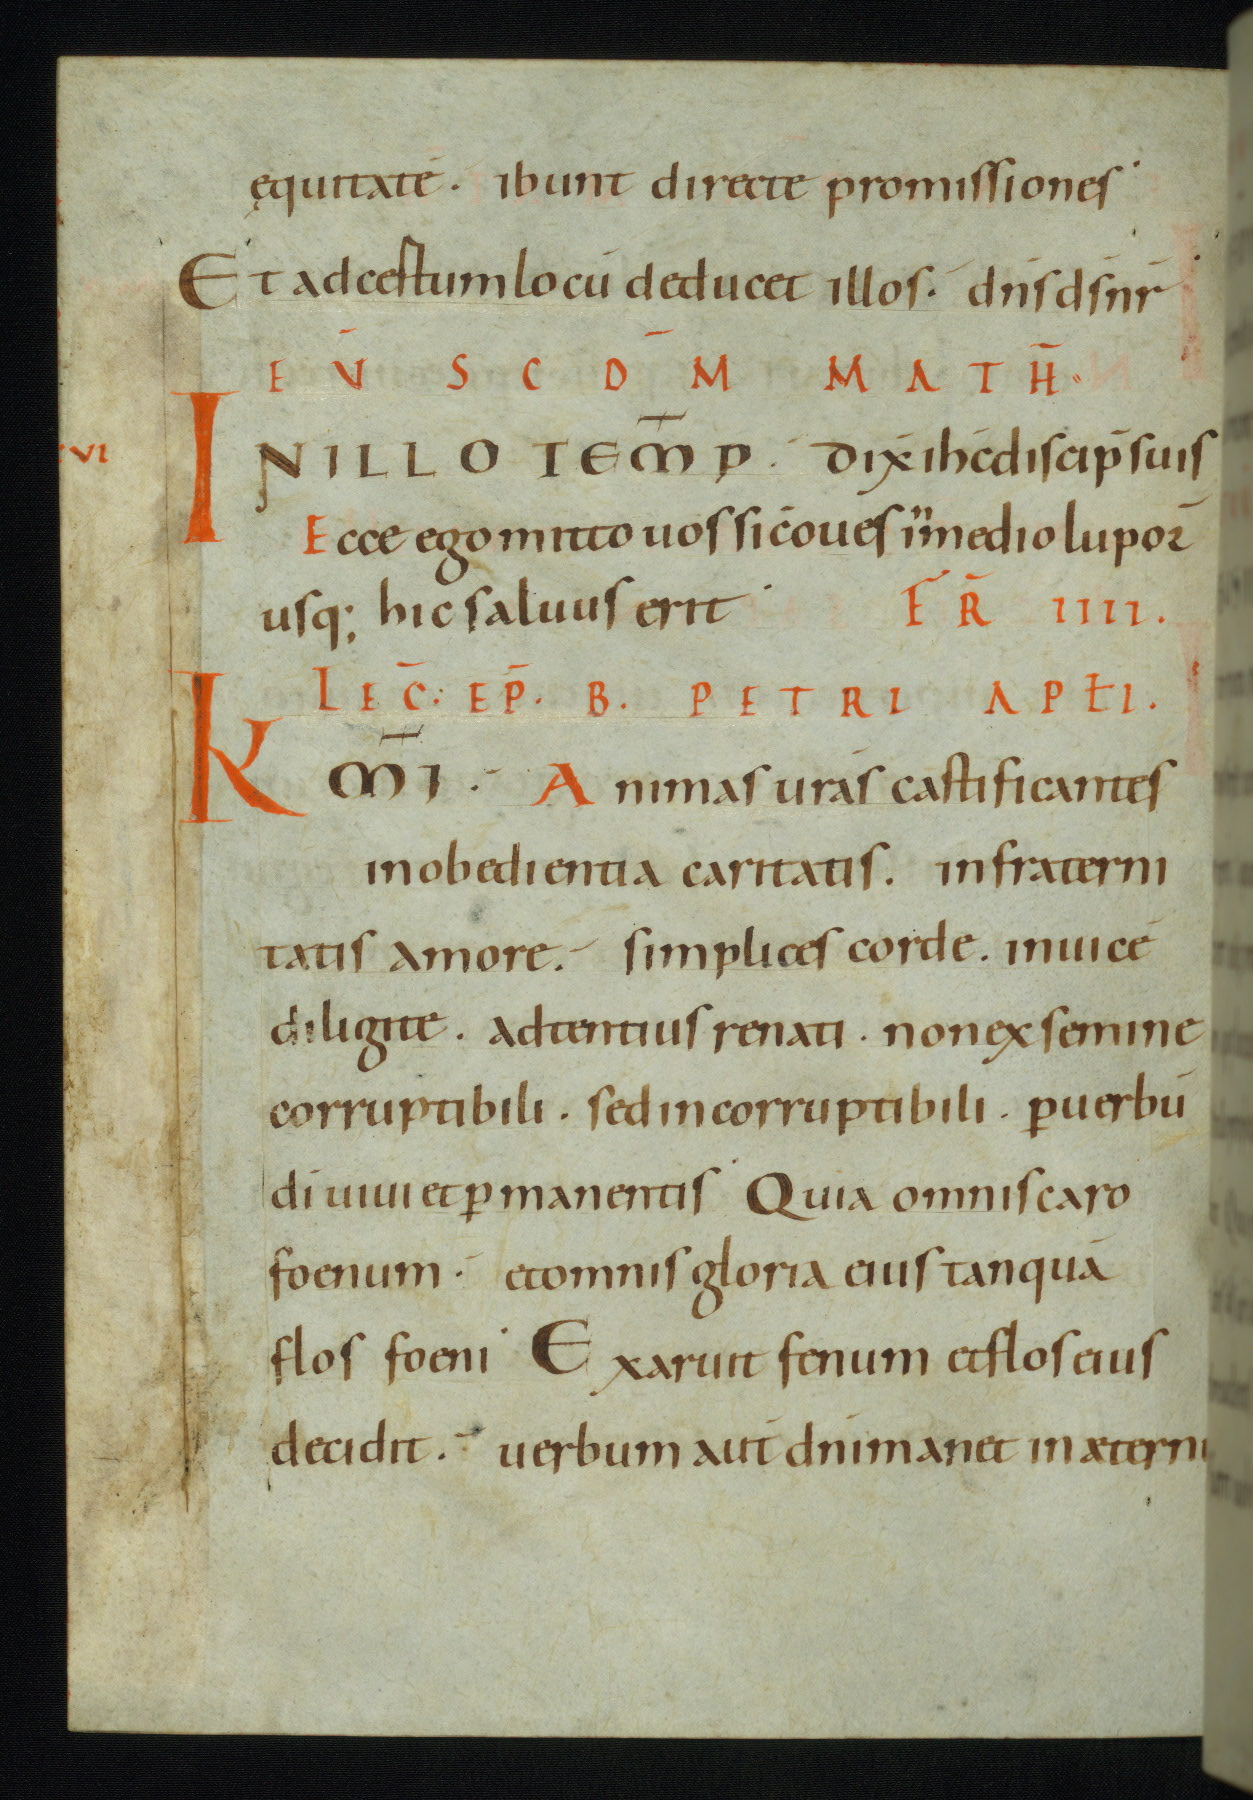 ęquitatē. ibunt directe promissiones
Et ad cestum locū deducet illos. dn̄s ds̄ nr̄
EṼ SCDM̄ MATH̄.
VI
IN ILLO TEM̄P. Dix̄ ih̄c discip̄ suis
Ecce ego mitto uos sic̄ oues in medio lupoꝝ
usq; hic saluus erit FR̄ IIII.
LEC̄. EP̄. B. PETRI APŁI.
KM̄I. Animas urās castificantes
in obedientia caritatis. in fraterni
tatis amore. simplices corde. inuicē
diligite. adtentius renati. non ex semine
corruptibili. sed incorruptibili. ꝑ uerbū
dī uiui et ꝑmanentis Quia omnis caro
foenum. et omnis gloria eius tanquā
flos foeni Exaruit fenum et flos eius
decidit. uerbum autˉ dn̄i manet in ætern